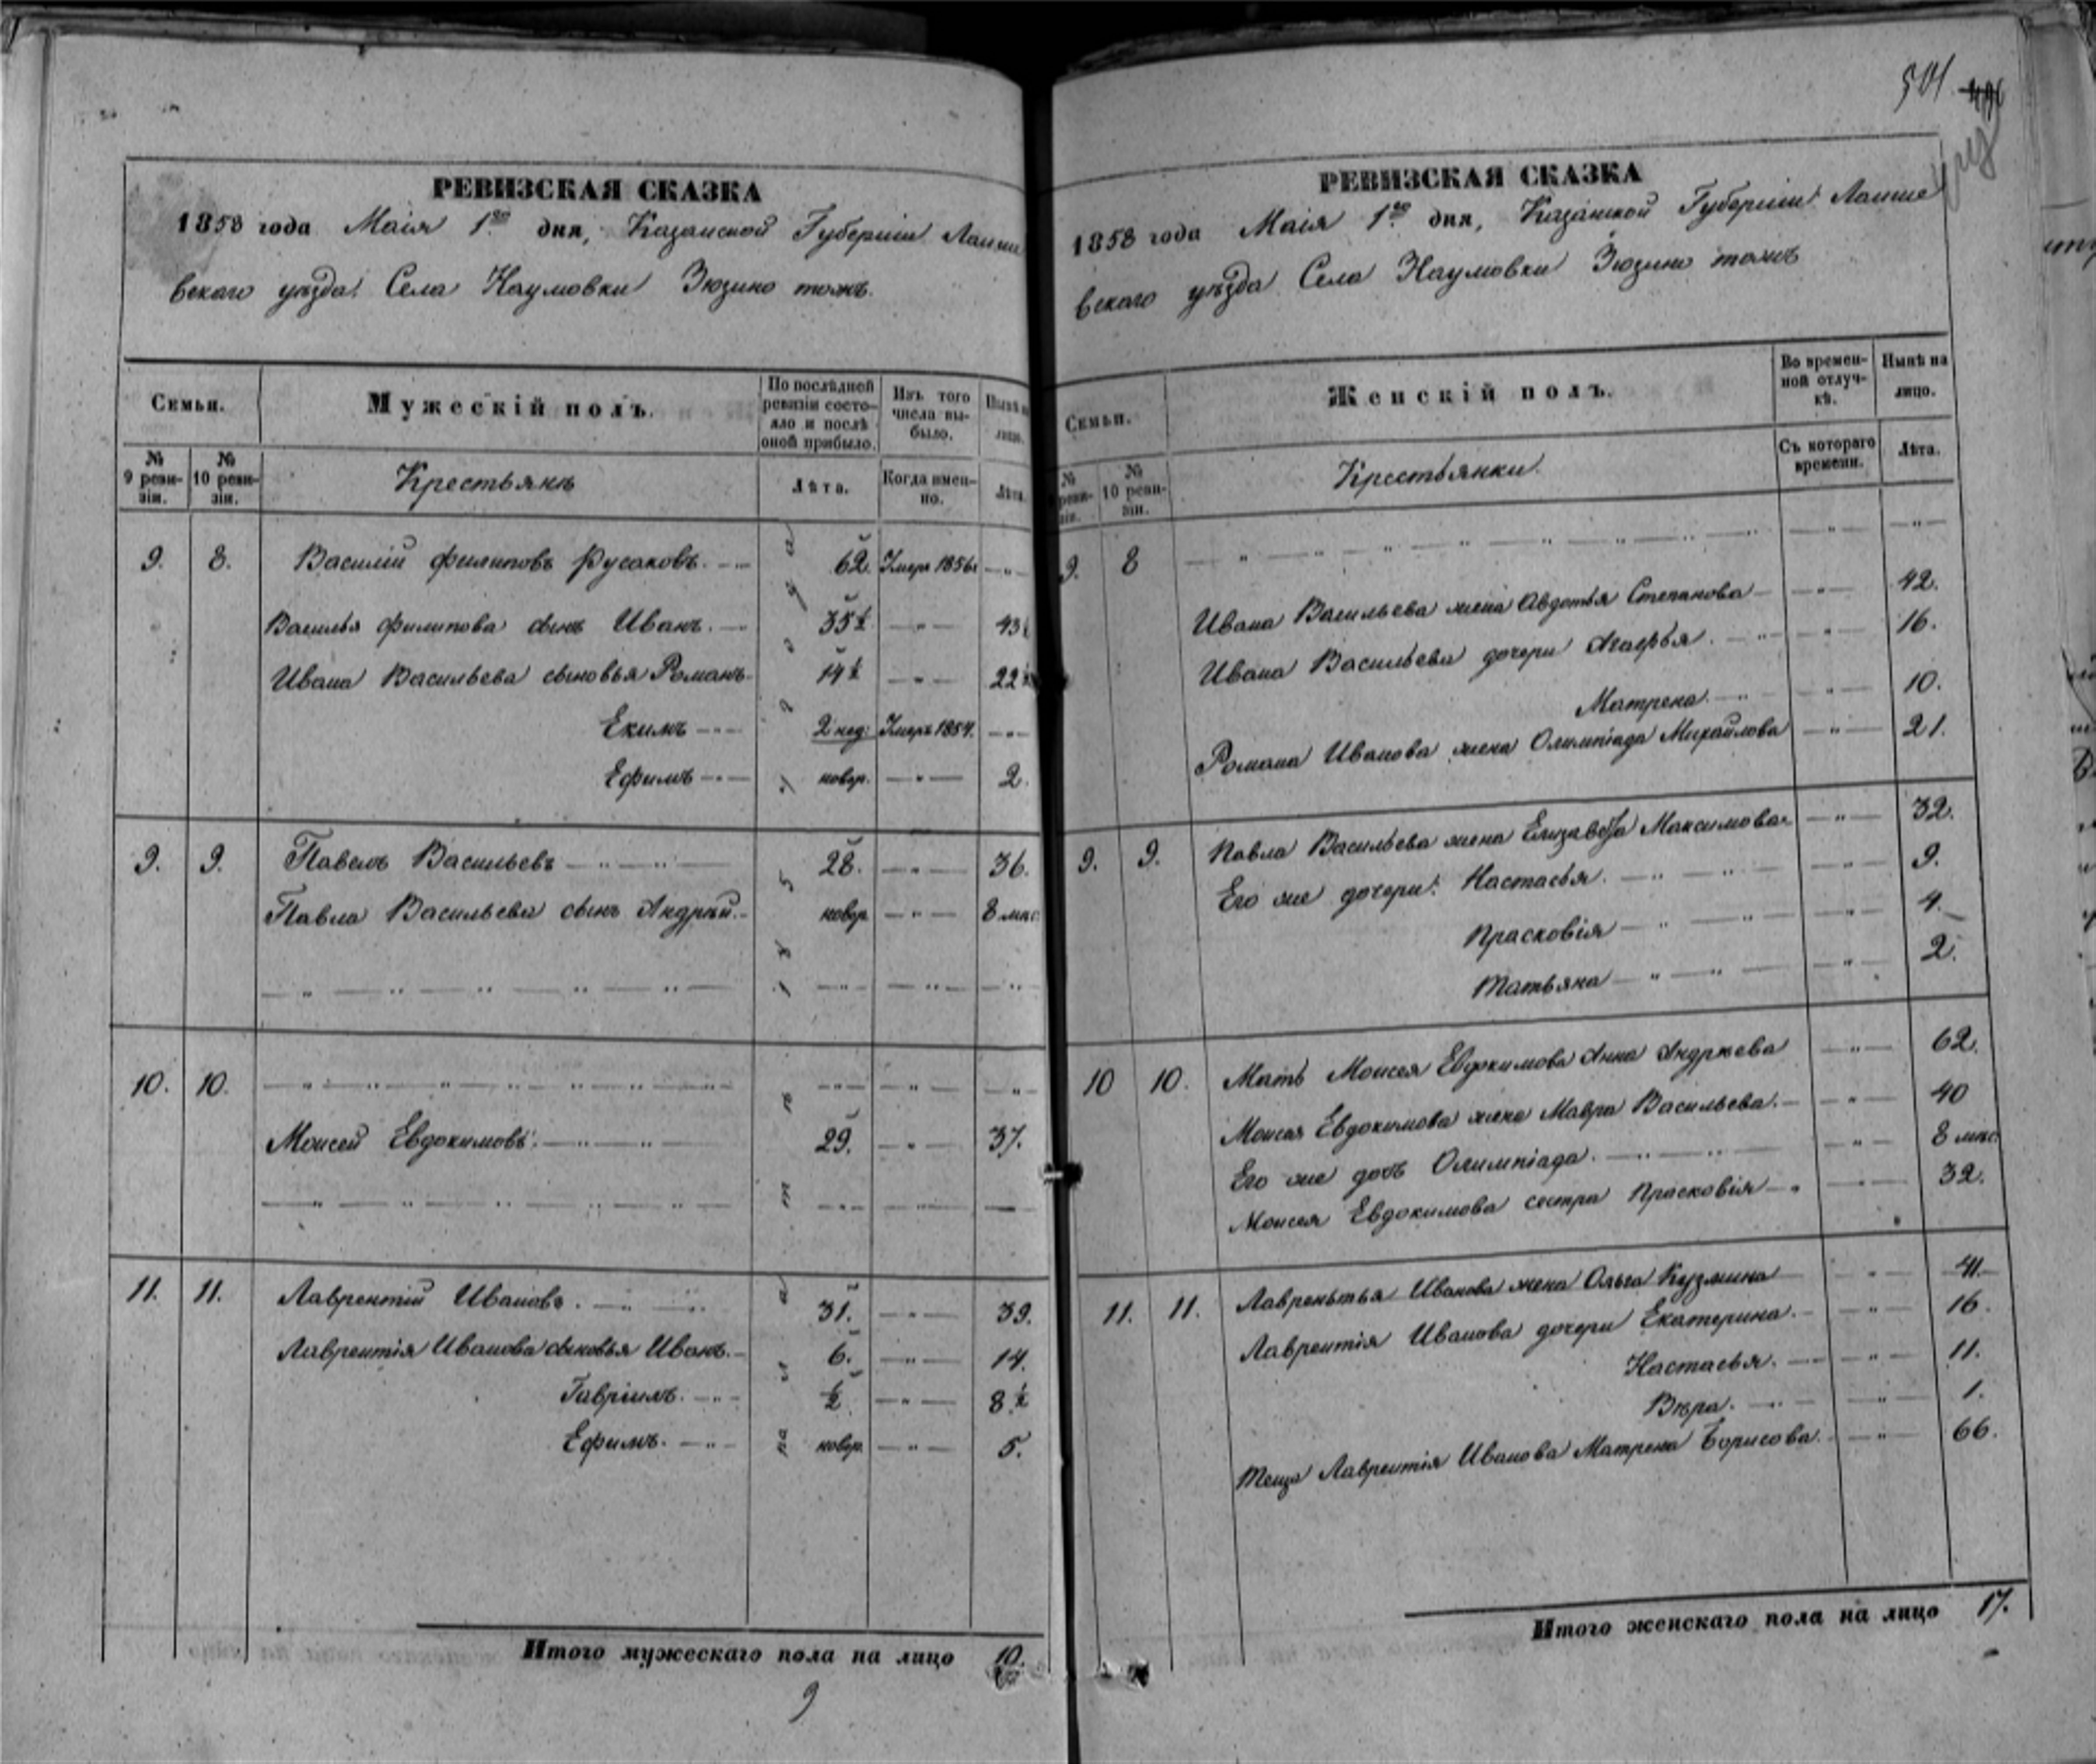 501. 496
РЕВИЗСКАЯ СКАЗКА
1858 года Маія 1го дня, Казанской Губерніи Лаише
вскаго уѣзда Села Наумовки Зюзино тожъ.
Семьи.
Мужескій полъ.
По послѣдней ревизіи состояло и послѣ оной прибыло.
Изъ того числа выбыло.
Нынѣ на лицо.
№ 9 ревизіи.
№ 10 ревизіи.
Крестьянѣ
Лѣта.
Когда именно.
Лѣта.
9. 8. Василій Филиповъ Русаковъ. 62. Умеръ 1856 — " —
Василья Филипова сынъ Иванъ. 35½ — " — 43½
Ивана Васильева сыновья Романъ 14½ — " — 22½
Екимъ 2 нед: Умеръ 1854. — " —
Ефимъ новор. — " — 2.
9. 9. Павелъ Васильевъ 28. — " — 36.
Павла Васильева сынъ Андрѣй. новор. — " — 8 мѣс.
10. 10. — " —
Моисей Евдокимовъ. 29. — " — 37.
11. 11. Лаврентій Ивановъ. 31. — " — 39.
Лаврентія Иванова сыновья Иванъ. 6. — " — 14.
Гавріилъ. ½ — " — 8½
Ефимъ. новор. — " — 5.
Итого мужескаго пола на лицо 10.
9
РЕВИЗСКАЯ СКАЗКА
1858 года Маія 1го дня, Казанской Губерніи Лаише
вскаго уѣзда Села Наумовки Зюзино тожъ
Семьи.
Женскій полъ.
Во временной отлучкѣ.
Нынѣ на лицо.
№ ревизіи.
№ 10 ревизіи.
Крестьянки.
Съ котораго времени.
Лѣта.
9. 8 — " — — " — — " —
Ивана Васильева жена Авдотья Степанова — " — 42.
Ивана Васильева дочери Агафья. — " — 16.
Матрена. — " — 10.
Романа Иванова жена Олимпіада Михайлова — " — 21.
9. 9. Павла Васильева жена Елизавета Максимова — " — 32.
Его же дочери: Настасья. — " — 9.
Прасковія — " — 4.
Татьяна — " — 2.
10 10. Мать Моисея Евдокимова Анна Андрѣева — " — 62.
Моисея Евдокимова жена Мавра Васильева. — " — 40
Его же дочь Олимпіада. — " — 8 мѣс.
Моисея Евдокимова сестра Прасковія — " — 32.
11. 11. Лаврентья Иванова жена Ольга Кузмина — " — 41.
Лаврентія Иванова дочери Екатерина. — " — 16.
Настасья. — " — 11.
Вѣра. — " — 1.
Теща Лаврентія Иванова Матрена Борисова. — " — 66.
Итого женскаго пола на лицо 17.